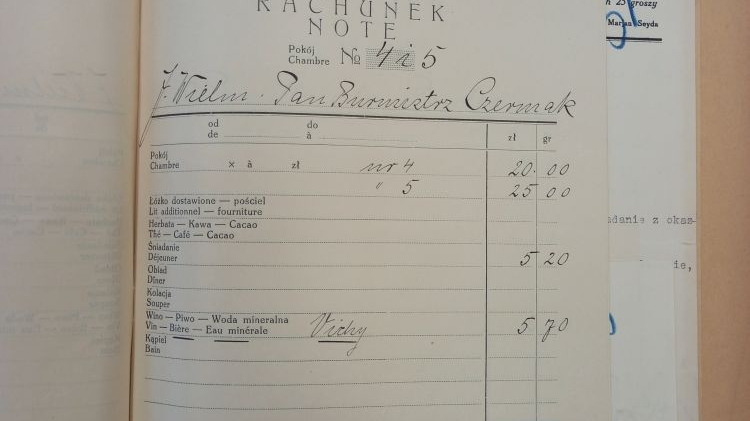 RACHUNEK
NOTE
Pokój
Chambre № 4 i 5
J. Wielm. Pan Burmistrz Czermak
od do zł gr
de à
Pokój
Chambre × à zł nr 4 20. 00
" 5 25 00
Łóżko dostawione — pościel
Lit additionnel — fourniture
Herbata — Kawa — Cacao
Thé — Café — Cacao
Śniadanie
Déjeuner 5 20
Obiad
Dîner
Kolacja
Souper
Wino — Piwo — Woda mineralna
Vin — Bière — Eau minérale Vichy 5 70
Kąpiel
Bain
25 groszy
Marjan Seyda
z okaz-
ie,